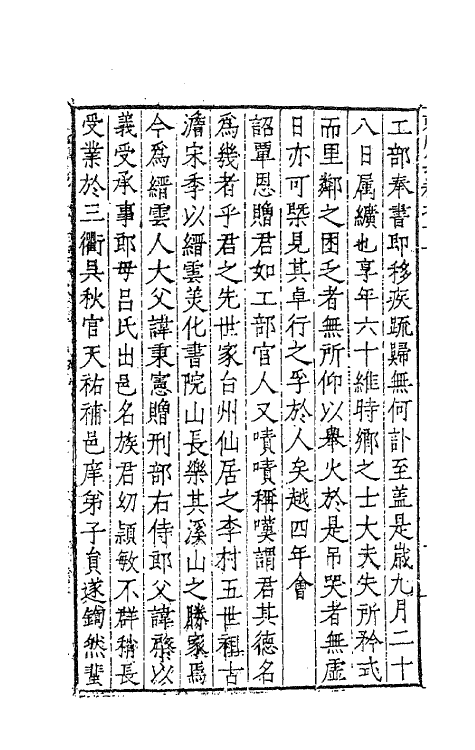 工部奉書即移疾疏歸無何訃至蓋是歲九月二十
八日属纊也享年六十維時鄉之士大夫失所矜式
而里鄰之困乏者無所仰以舉火於是吊哭者無虛
日亦可槩見其卓行之孚於人矣越四年會
詔覃恩贈君如工部官人又嘖嘖稱嘆謂君其德名
爲幾者乎君之先世家台州仙居之李村五世祖古
澹宋季以縉雲美化書院山長樂其溪山之勝家焉
今爲縉雲人大父諱秉憲贈刑部右侍郎父諱棨以
義受承事郎母吕氏出邑名族君幼頴敏不群稍長
受業於三衢吳秋官天祐補邑庠弟子員遂鋭然蜚